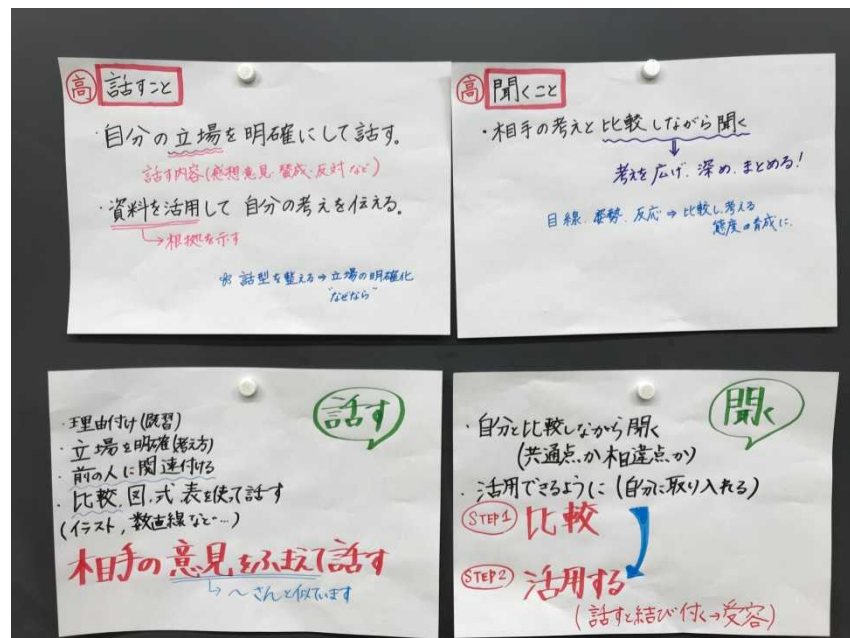 高 話すこと
・自分の立場を明確にして話す。
話す内容(感想意見・賛成・反対など)
・資料を活用して自分の考えを伝える。
→根拠を示す
話型を整える⇒立場の明確化
"なぜなら"
高 聞くこと
・相手の考えと比較しながら聞く
考えを広げ、深め、まとめる!
目線、姿勢、反応⇒比較し、考える
態度の育成に。
話す
・理由付け(既習)
・立場を明確(考え方)
・前の人に関連付ける
・比較、図、式、表を使って話す
(イラスト、数直線など…)
相手の意見をふまえて話す
→〜さんと似ています
聞く
・自分と比較しながら聞く
(共通点か相違点か)
・活用できるように(自分に取り入れる)
STEP1 比較
STEP2 活用する
(話すと結び付く→受容)